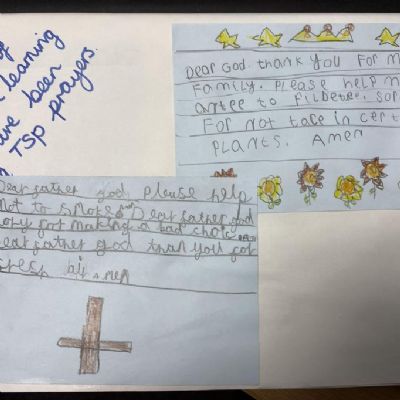 of
learning
have been
TSP prayers.
Dear God thank you For m
Family. Please help m
agree to
For not take in cert
Plants. Amen
Dear father god please help
not to smoke Dear father god
sory for making a bad choic
Dear father god than you for
amen